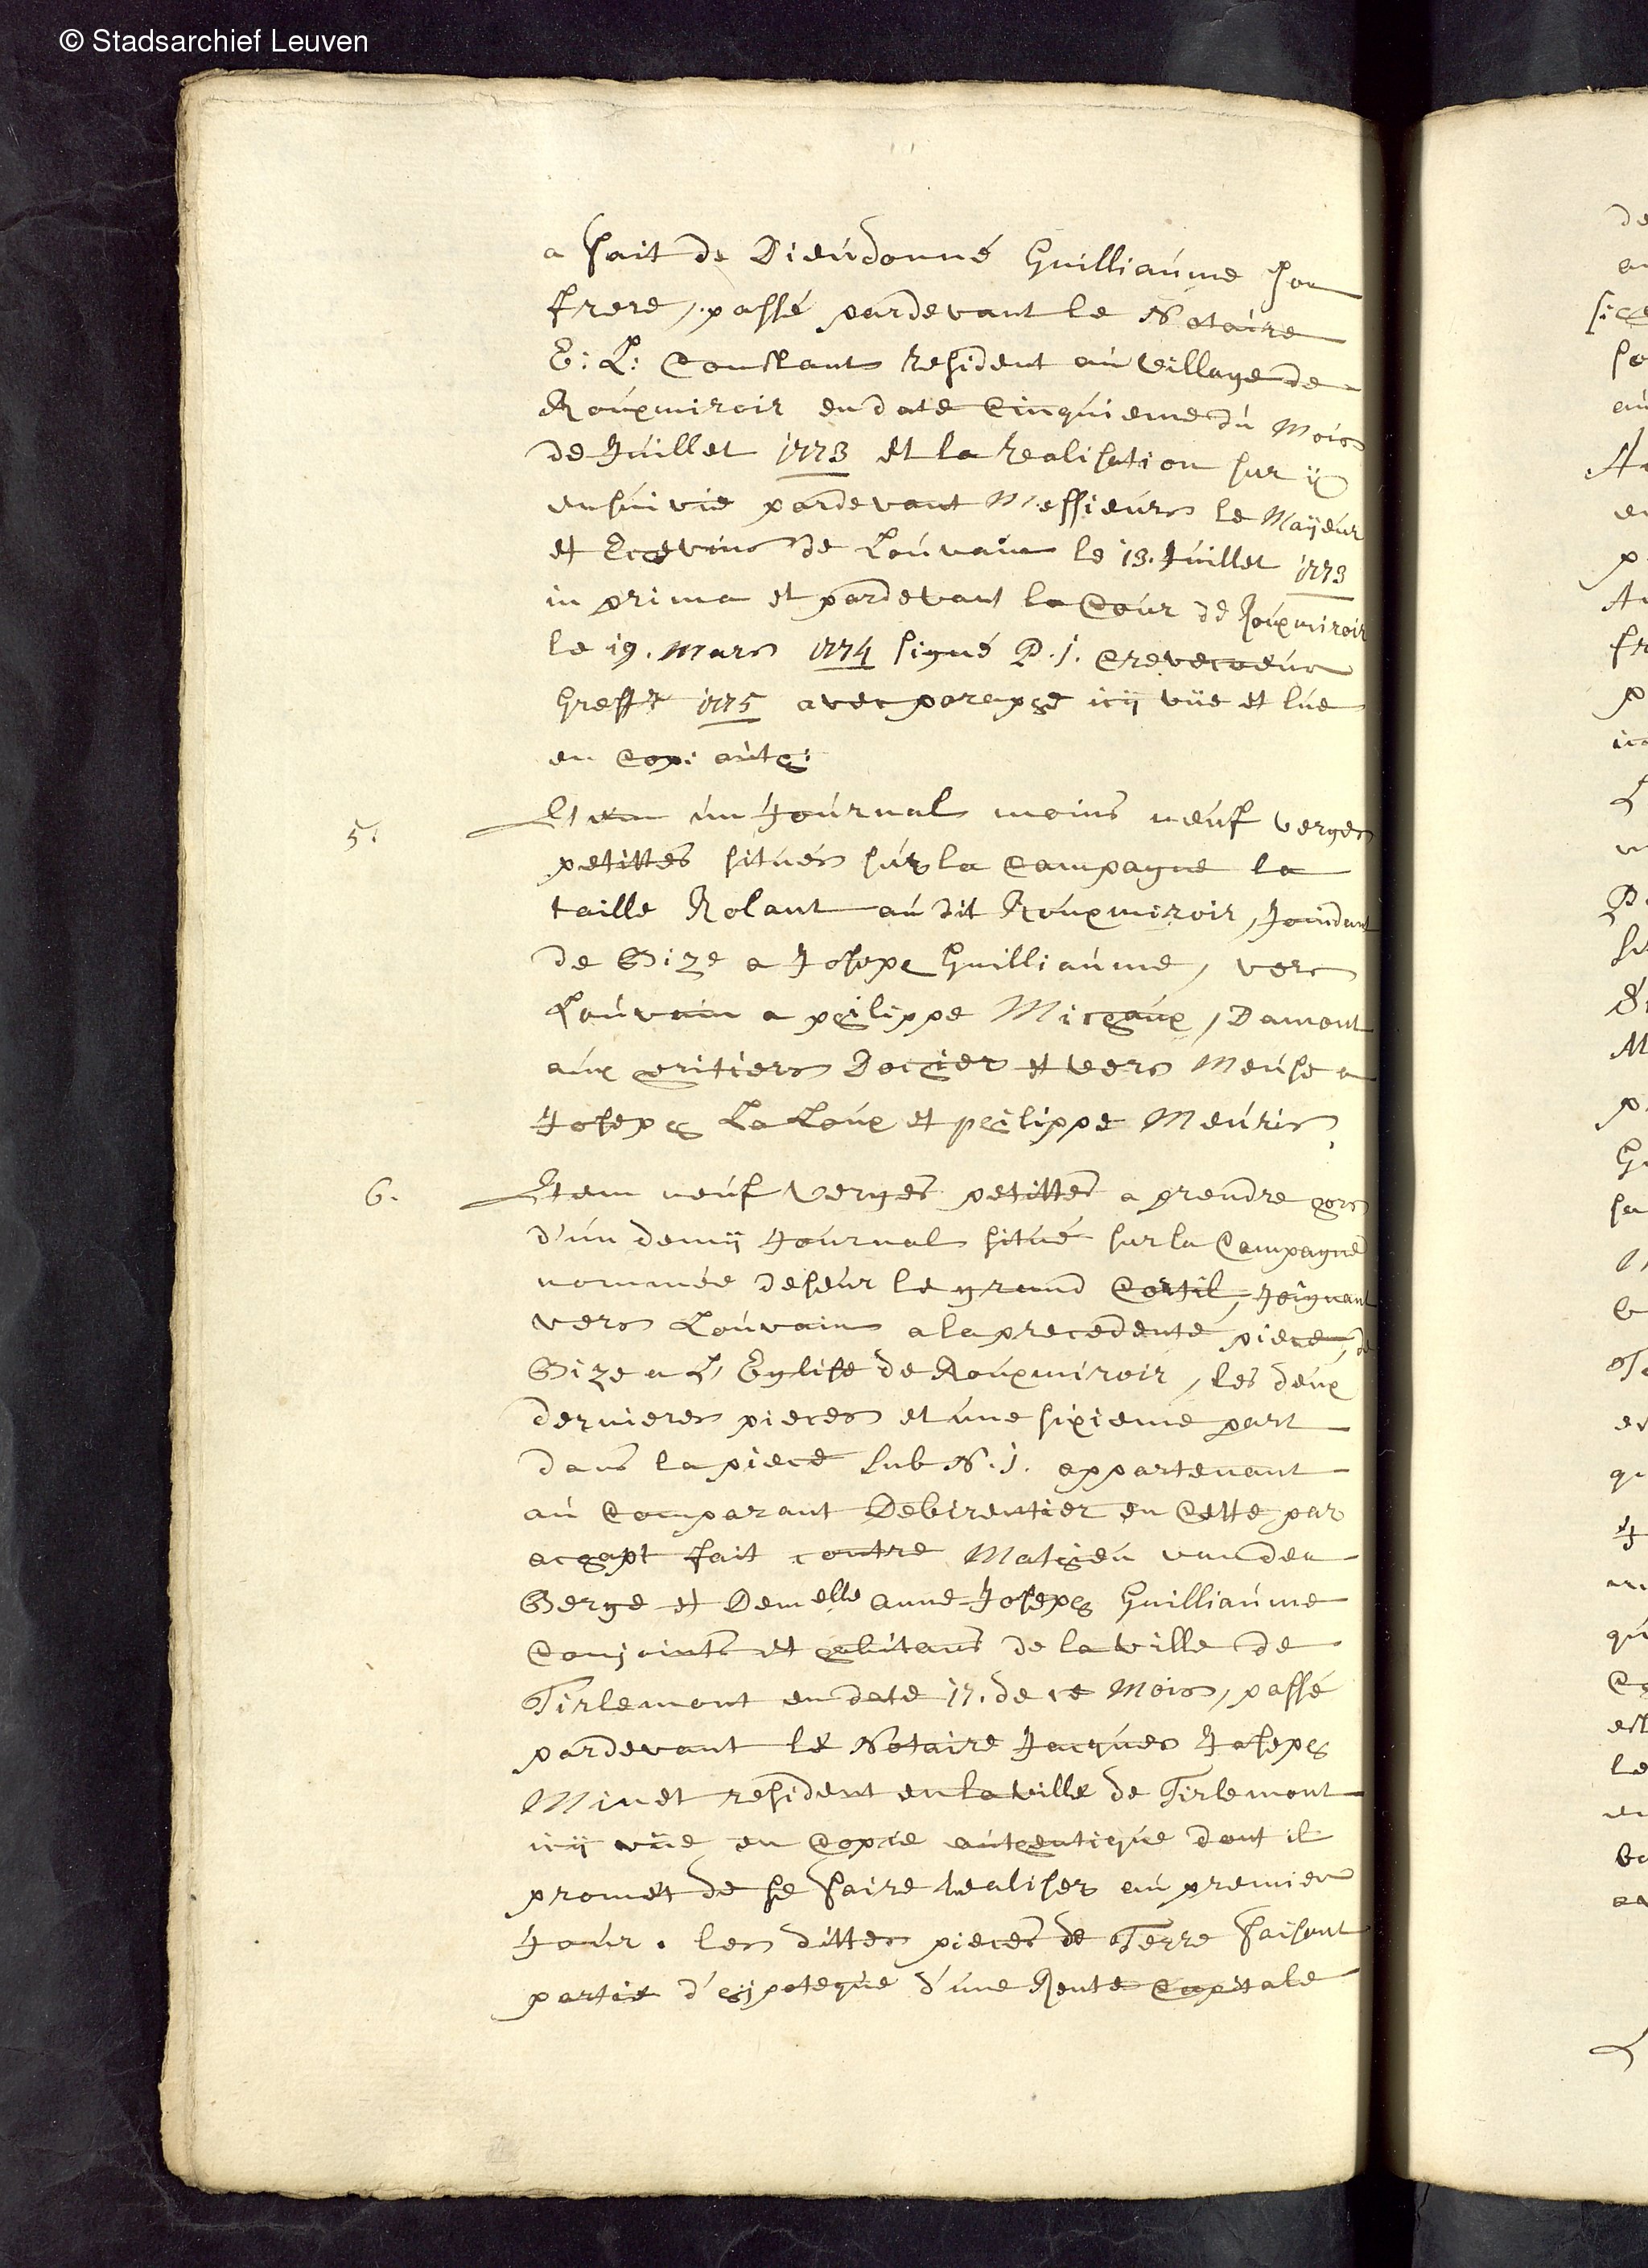 © Stadsarchief Leuven
a fait de Dieudonné Guilliaume son
frere, passé pardevant le Notaire
E: L: Constant resident au village de
Rouxmiroir en date cinquieme du Mois
de Juillet 1773 et la realisation sur ÿ
ensuivie pardevant Messieurs le Maÿeur
et Echevins de Louvain le 13. Juillet 1773
in prima et pardevant la Cour de Rouxmiroir
le 19. Mars 1774 signé P. J. Crevecoeur
Greffr 1775 avec paraphe icÿ vüe et lue
en Copi: auth:
5. Item un Journal moins neuf verges
petittes situés sur la Campagne la
taille Rolant au dit Rouxmiroir, Joindant
de Bize a Joseph Guilliaume, vers
Louvain a philippe Michaux, Damont
aux heritiers Dochier et vers Meuse a
Joseph La Loux et philippe Meuris
6. Item neuf Verges petittes a prendre hors
d'un demÿ Journal situé sur la Campagne
nommée deseur le grand Cortil, Joignant
vers Louvain a la precedente piece, de
Bize a L'Eglise de Rouxmiroir, les deux
dernieres pieces et une sixieme part
dans la piece sub N. 1. appartenant
au Comparant Debirentier en Cette par
achapt fait contre Mathieu vanden
Berge et Demelle anne Joseph Guilliaume
Conjoints et habitans de la ville de
Tirlemont en date 17. de ce Mois, passé
pardevant le Notaire Jacques Joseph
Minet resident en la ville de Tirlemont
icÿ vüe en Copie authentique dont il
promet de se faire realiser au premier
Jour. les dittes pieces de Terre faisant
partie d'hÿpoteque d'une Rente Capitale